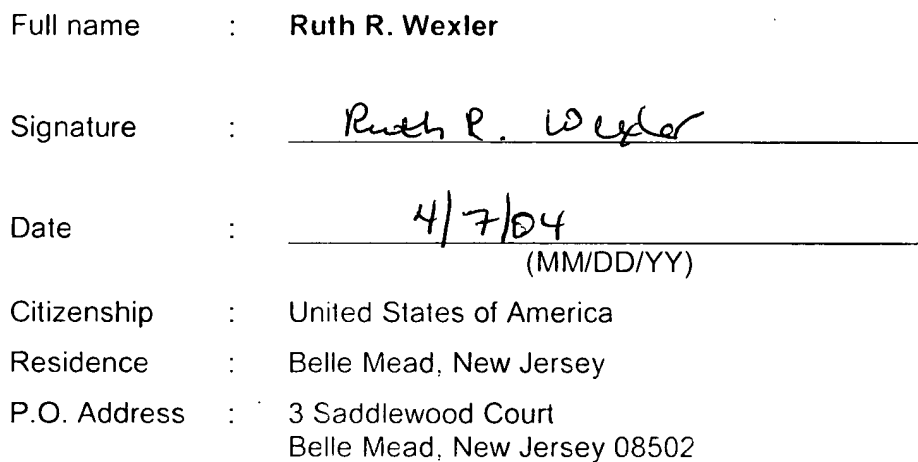 Full name : Ruth R. Wexler
Signature : Ruth R. Wexler
Date : 4/7/04
(MM/DD/YY)
Citizenship : United States of America
Residence : Belle Mead, New Jersey
P.O. Address : 3 Saddlewood Court
Belle Mead, New Jersey 08502